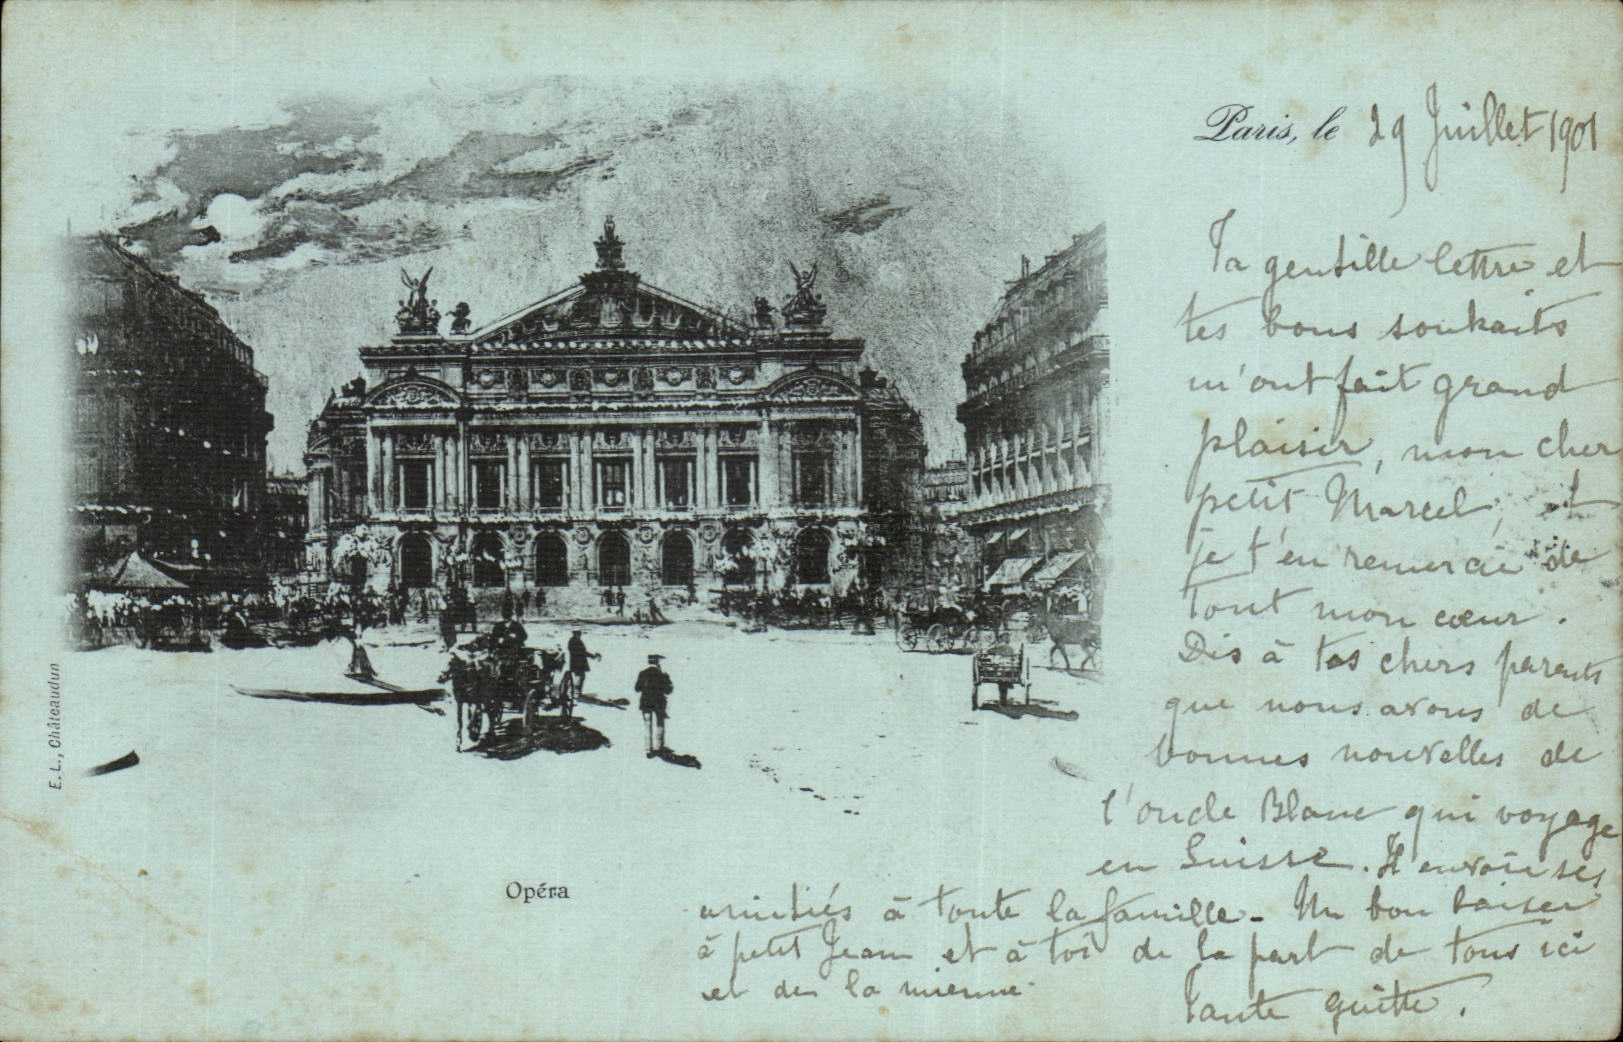 Paris, le 29 Juillet 1901
Ta gentille lettre et
tes bons souhaits
m'ont fait grand
plaisir, mon cher
petit Marcel, et
je t'en remercie de
tout mon cœur.
Dis à tes chers parents
que nous avons de
bonnes nouvelles de
l'oncle Blanc qui voyage
en Suisse. Il envoie ses
amitiés à toute la famille - Un bon baiser
à petit Jean et à toi de la part de tous ici
et de la mienne.
Tante Guitte.
Opéra
E. L., Châteaudun